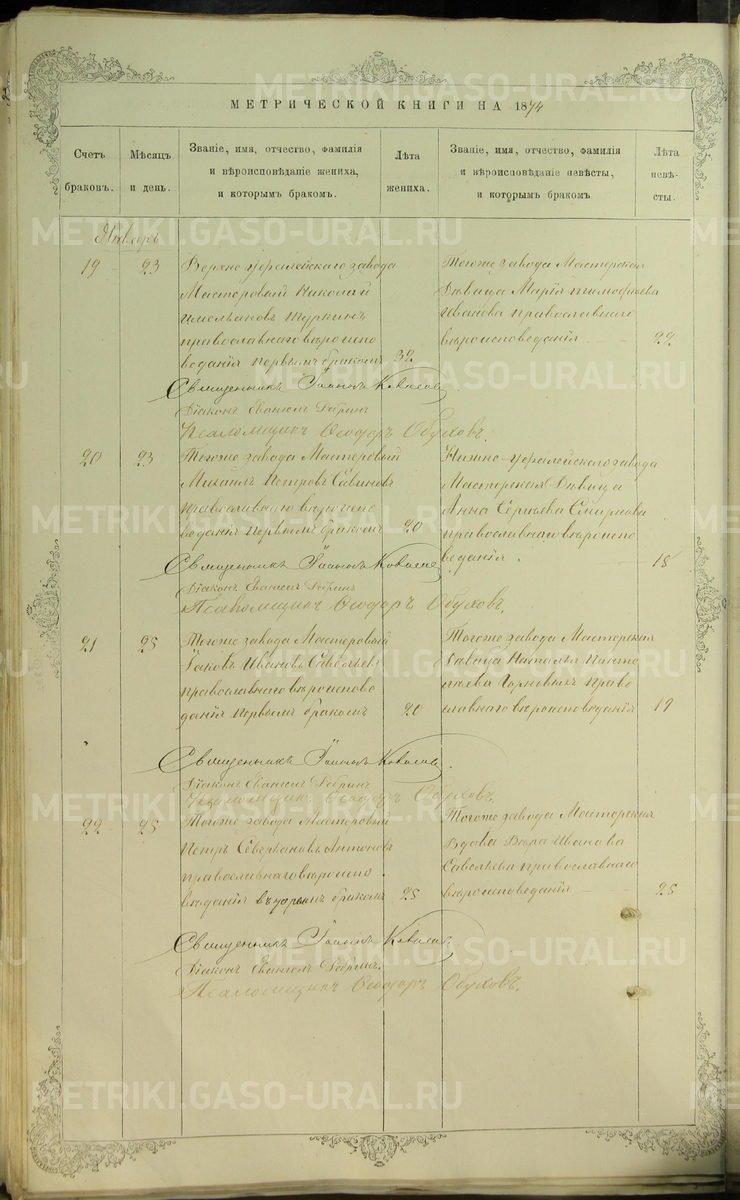 МЕТРИЧЕСКОЙ КНИГИ НА 1874
Счетъ браковъ.
Мѣсяцъ и день.
Званіе, имя, отчество, фамилія
и вѣроисповѣданіе жениха,
и которымъ бракомъ.
Лѣта жениха.
Званіе, имя, отчество, фамилія
и вѣроисповѣданіе невѣсты,
и которымъ бракомъ.
Лѣта невѣсты.
Январь
19
23
Верхно-Уфалейскаго завода
Мастеровый Николай
Туркинъ
православнаго вѣроиспо
веданія первымъ бракомъ
32
Тогоже завода Мастерская
Дѣвица Марія Тимофѣева
Иванова православнаго
вѣроисповеданія
22
Священникъ Іоаннъ Ковалевъ
Діаконъ Евангелъ
Псаломщикъ Ѳеодоръ Обуховъ.
20
23
Тогоже завода Мастеровый
Михаилъ Петровъ Савиновъ
православнаго вѣроиспо
веданія первымъ бракомъ
20
Нижно-Уфалейскаго завода
Мастерская Дѣвица
Анна Сергѣева Смирнова
православнаго вѣроиспо
веданія.
18
Священникъ Іоаннъ Ковалевъ
Діаконъ Евангелъ
Псаломщикъ Ѳеодоръ Обуховъ.
21
25
Тогоже завода Мастеровый
Іаковъ Ивановъ Савельевъ
православнаго вѣроиспове
данія первымъ бракомъ
20
Тогоже завода Мастерская
Дѣвица Наталья
Горновыхъ право
славнаго вѣроисповеданія
19
Священникъ Іоаннъ Ковалевъ.
Діаконъ Евангелъ
Псаломщикъ Ѳеодоръ Обуховъ.
22
25
Тогоже завода Мастеровый
Петръ Северьяновъ Антоновъ
православнаго вѣроиспо
веданія вторымъ бракомъ
25
Тогоже завода Мастерская
Вдова Вѣра Иванова
Савельева православнаго
вѣроисповеданія
25
Священникъ Іоаннъ Ковалевъ
Діаконъ Евангелъ
Псаломщикъ Ѳеодоръ Обуховъ.
METRIKI.GASO-URAL.RU